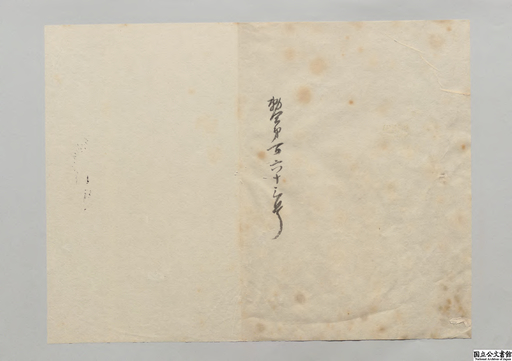 勅令第百六十三号
国立公文書館
National Archives of Japan